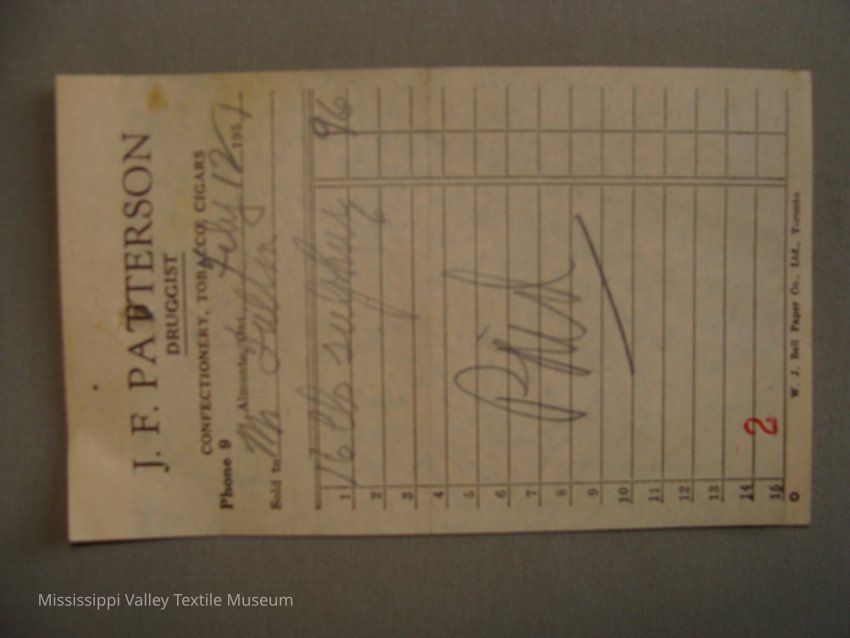 J. F. PATTERSON
DRUGGIST
CONFECTIONERY, TOBACCO, CIGARS
Phone 9 Almonte, Ont. 12 195
Sold to Mr.
1 16 lb sulphur 96
2
3
4
5
6
7
8
9
10
11
12
13
14
15
2
W. J. Bell Paper Co., Ltd., Toronto
Mississippi Valley Textile Museum